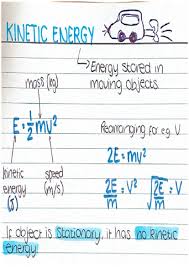 KINETIC ENERGY
↳ Energy stored in
moving objects.
mass (kg)
E = ½mv²
kinetic
energy
(J)
speed
(m/s)
Rearranging for e.g. V
2E = mv²
2E/m = V²
√2E/m = V
If object is stationary, it has no kinetic
energy.